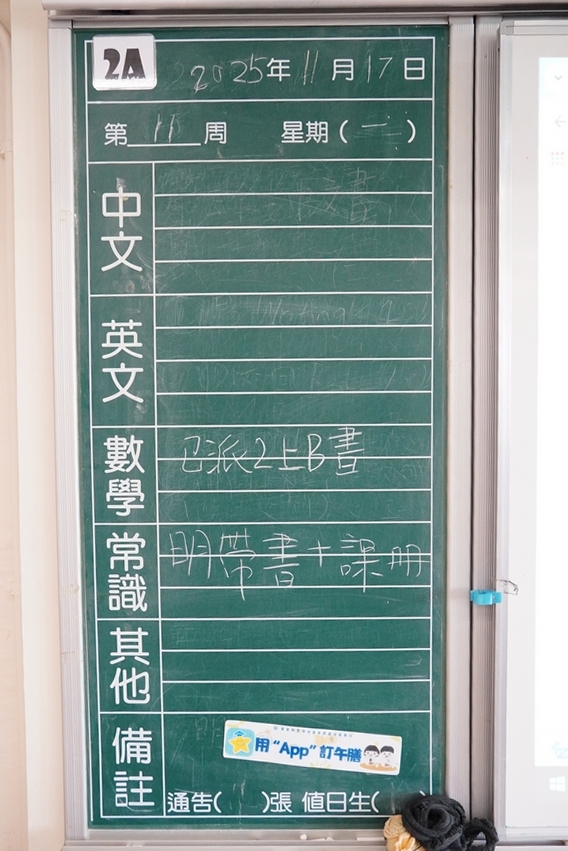 2A
2025年11月17日
第11周 星期(一)
中文
英文
數學
已派2上B書
常識
明帶書+課册
其他
備註
用“App”訂午膳
通告( )張 值日生( )